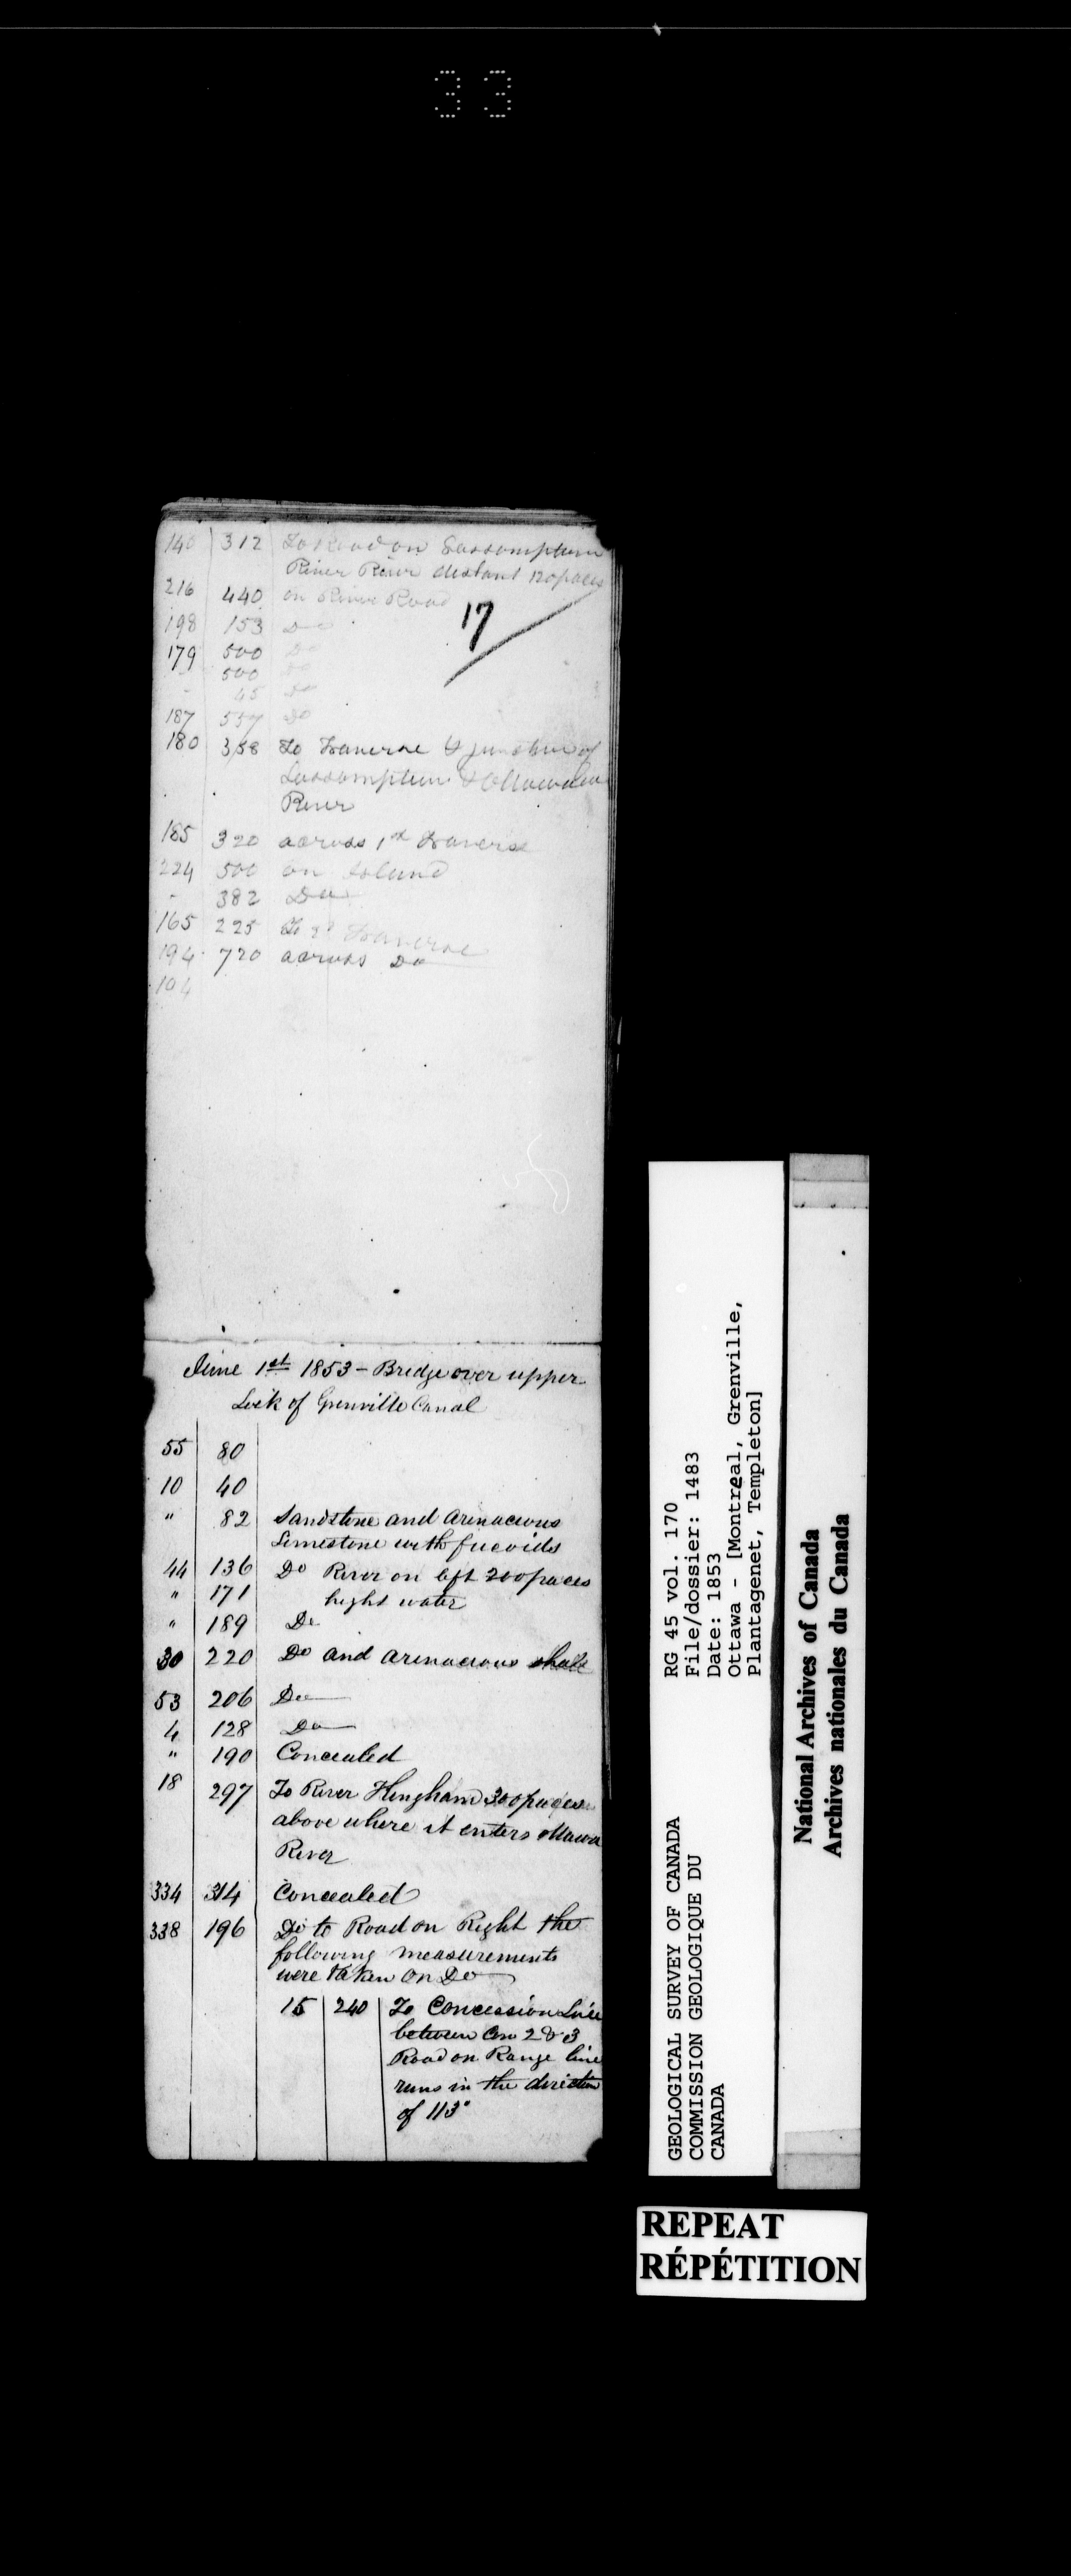 33
140 312 To Road on Lassomption
River River distant 120 paces
216 440 on River Road
17
198 153 Do
179 500 Do
- 500 Do
- 45 Do
187 557 Do
180 358 To Traverse & junction of
Lassomption & Ottawa
River
185 320 across 1st traverse
224 500 on Island
- 382 Do
165 225 To 2d Traverse
194 720 across Do
194
June 1st 1853 - Bridge over upper
Lock of Grenville Canal
55 80
10 40
" 82 Sandstone and arinaceous
Limestone with fucoids
44 136 Do River on left 200 paces
" 171 hight water
" 189 Do
30 220 Do and arinaceous shale
53 206 Do
4 128 Do
" 190 Concealed
18 297 To River Hingham 300 paces
above where it enters Ottawa
River
334 314 Concealed
338 196 Do to Road on Right the
following measurements
were taken on Do
15 240 To Concession Line
between Con 2 & 3
Road on Range line
runs in the direction
of 113°
GEOLOGICAL SURVEY OF CANADA
COMMISSION GEOLOGIQUE DU
CANADA
RG 45 vol. 170
File/dossier: 1483
Date: 1853
Ottawa - [Montreal, Grenville,
Plantagenet, Templeton]
National Archives of Canada
Archives nationales du Canada
REPEAT
RÉPÉTITION